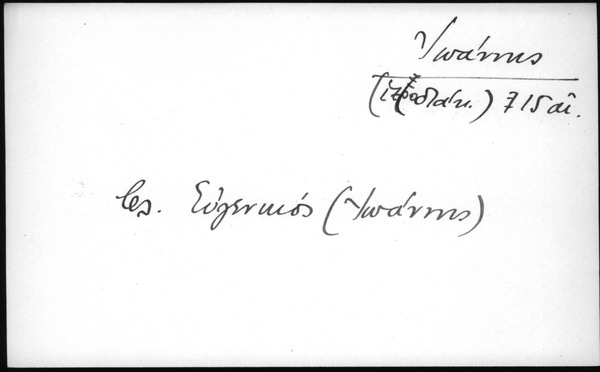 Ἰωάννης
(ἱεροδιάκ.) 715 αἰ.
βλ. Εὐγενικός (Ἰωάννης)